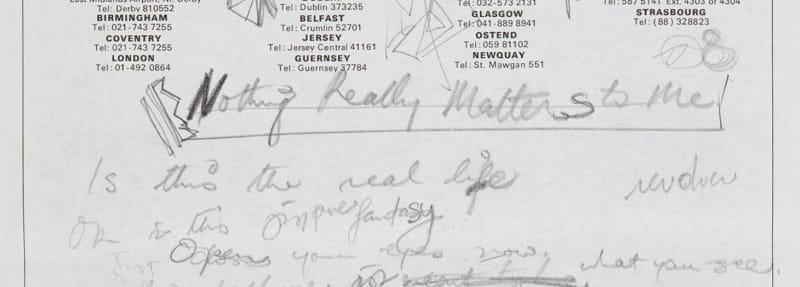 Tel: Derby 810552
BIRMINGHAM
Tel: 021-743 7255
COVENTRY
Tel: 021-743 7255
LONDON
Tel: 01-492 0864
Tel: Dublin 373235
BELFAST
Tel: Crumlin 52701
JERSEY
Tel: Jersey Central 41161
GUERNSEY
Tel: Guernsey 37784
Tel: 032-573 2131
GLASGOW
Tel: 041-889 8941
OSTEND
Tel: 059 81102
NEWQUAY
Tel: St. Mawgan 551
Tel: 587 5141 Ext. 4303 or 4304
STRASBOURG
Tel: (88) 328823
Nothing Really Matters to Me
Is this the real life
or is this fantasy
Just Open your eyes now, what you see.